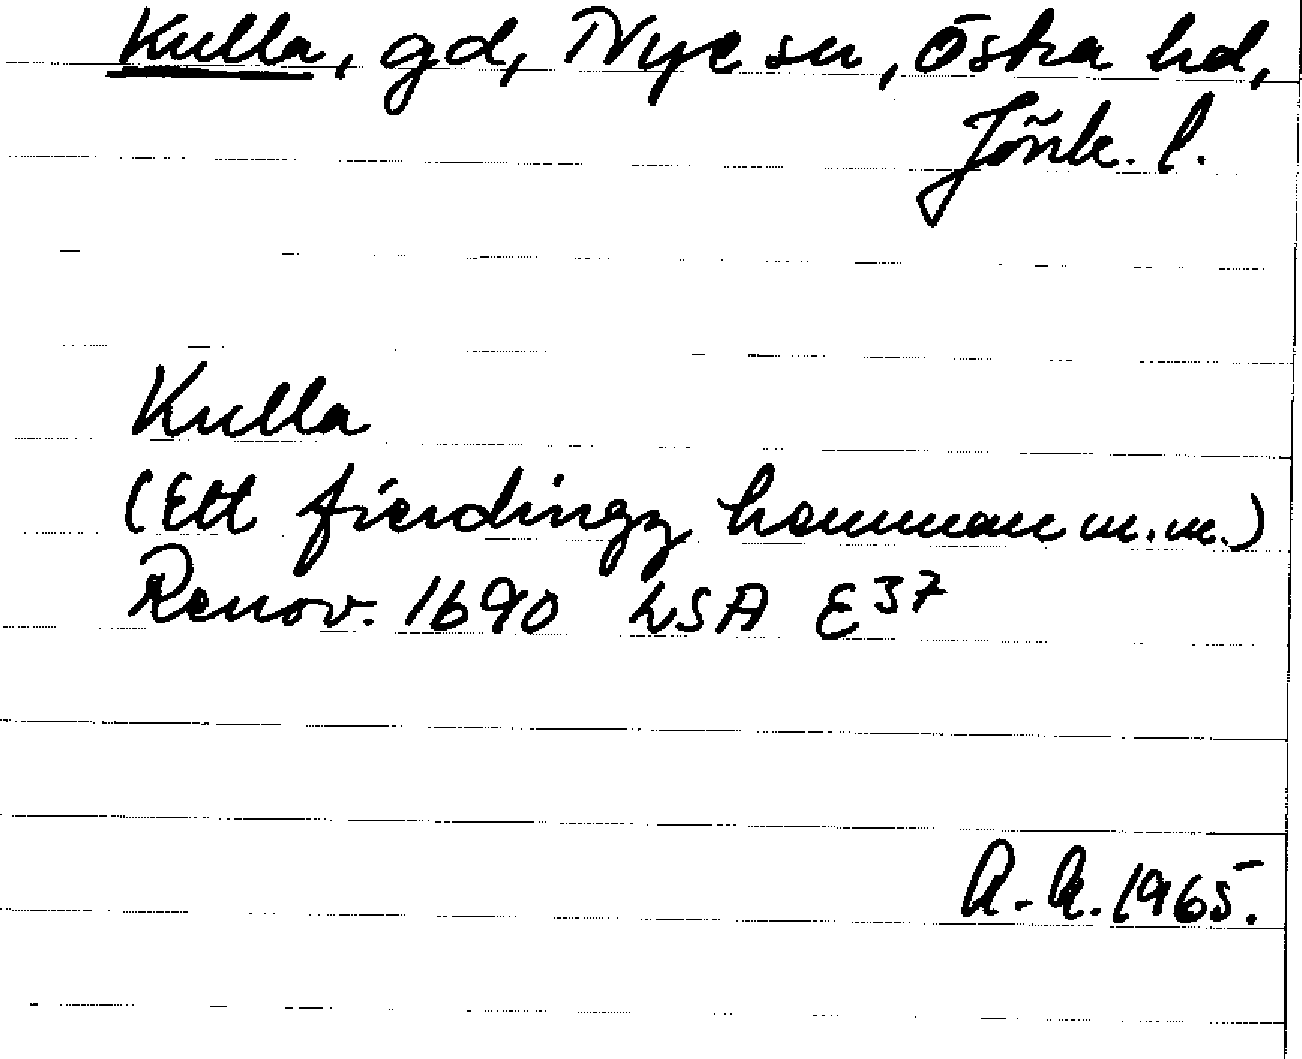 Kulla, gd, Nye sn, Östra hd,
Jönk. l.
Kulla
(Ett fierdingz hemman m.m.)
Renov. 1690 LSA E37
1965.